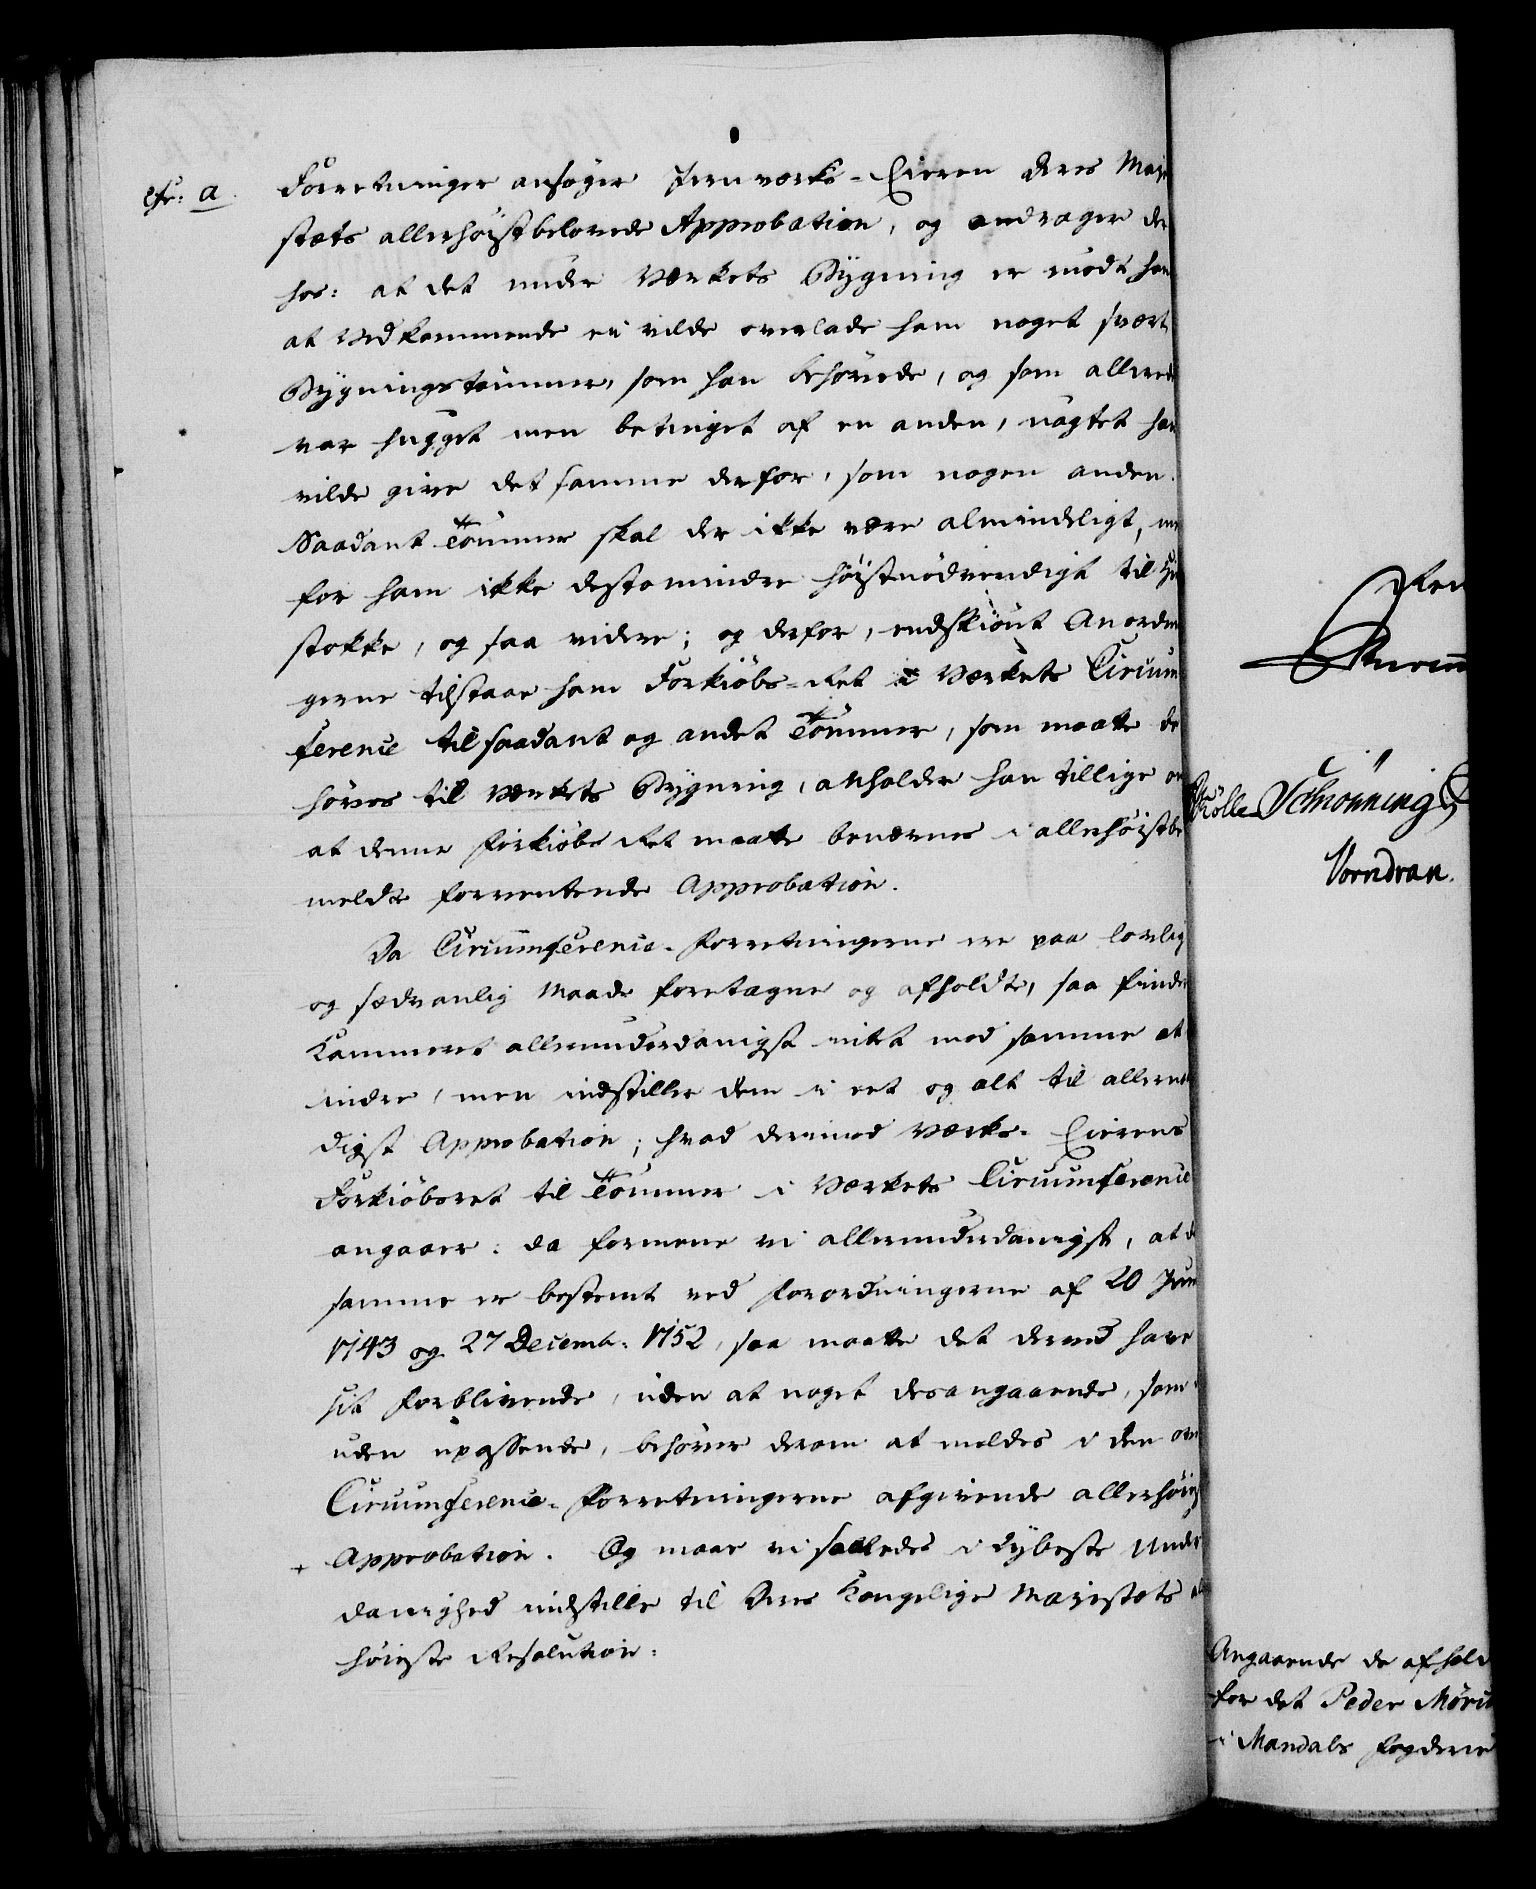 cfr: a.
Forretninger ansøger Jernværks-Eieren Deres Maje
stæts allerhøistbelovede Approbation, og andrager der
hos: at det under Værkets Bygning er mødt ham
at Vedkommende ei vilde overlade ham noget svært
Bygningstømmer, som han behøvede, og som allerede
var hugget men betinget af en anden, uagtet han
vilde give det samme derfor, som nogen anden.
Saadant Tømmer skal der ikke være almindeligt, men
for ham ikke desto mindre høistnødvendigt til
stokke, og saa videre; og derfor, endskiønt Anordnin
gerne tilstaae ham Forkiøbs-Ret i Værkets Circum
ference til saadant og andet Tømmer, som maatte be
høves til Værkets Bygning, anholder han tillige om
at denne Forkiøbs Ret maatte benævnes i allerhøistbe
meldte forventende Approbation.
Da Circumference-Forretningerne ere paa lovlig
og sædvanlig Maade foretagne og afholdte, saa finder
Kammeret allerunderdanigst intet mod samme at er
indre, men indstiller dem i eet og alt til allernaa
digst Approbation; hvad derimod Værks-Eierens
Forkiøbsret til Tømmer i Værkets Circumference
angaaer: da formene vi allerunderdanigst, at da
samme er bestemt ved Forordningerne af 20 Junii
1743 og 27 Decemb: 1752, saa maatte det derved have
sit Forblivende, uden at noget desangaaende, som
uden upassende, behøver derom at meldes i den over
Circumference-Forretningerne afgivende allerhøieste
+ Approbation. Og maae vi saaledes i dybeste Under
danighed indstille til Deres Kongelige Majestæts aller
høieste Resolution:
Ren
Schiønning
Vorndran.
Angaaende de afhold
for det Peder Mørch
i Mandals Fogderie